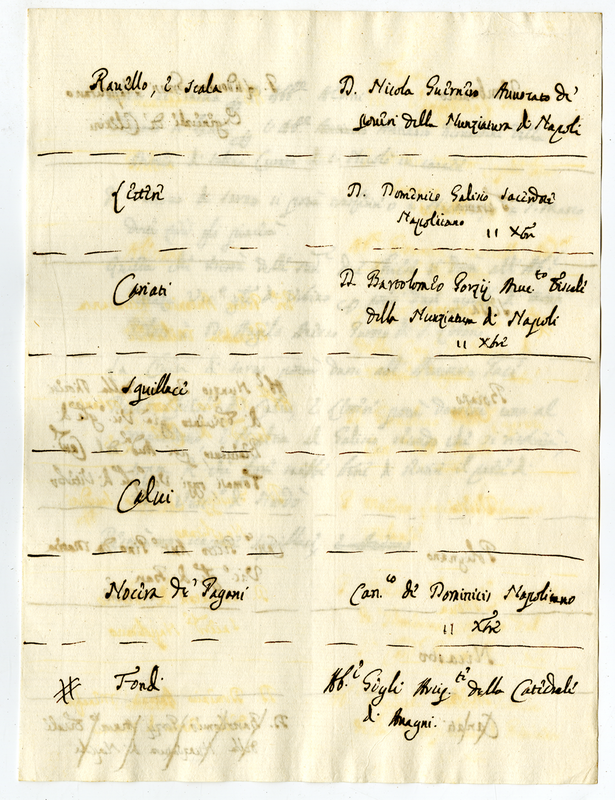 Ravello, e scala
D. Nicola Guerrero Avvocato de'
poveri della Nunziatura di Napoli
Lettere
D. Domenico Galisio sacerdote
Napolitano
11 Xbre
Cariati
D. Bartolomeo Gorzij Avvto fiscale
della Nunziatura di Napoli
11 Xbre
Squillaci
Calvi
Nocera de' Pagani
Can.co de Dominicis Napolitano
11 Xbre
# Fondi
Abb.e Gigli Arcip.te della Catedrale
di Anagni.